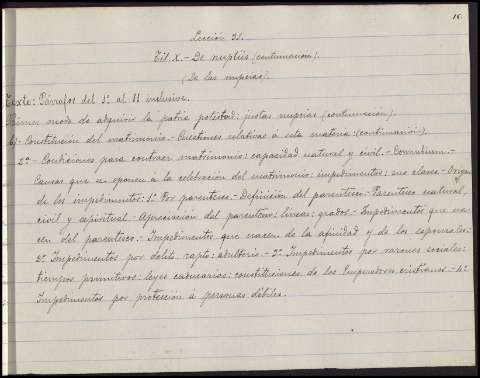 16.
Lección 21.
Tít. X.- De nuptiis (continuación).
(De las nupcias).
Texto: Párrafos del 1º al 11 inclusive.
Primer modo de adquirir la patria potestad: justas nupcias (continuación).
b).- Constitución del matrimonio.- Cuestiones relativas á esta materia (continuación).
2º.- Condiciones para contraer matrimonio: capacidad natural y civil.- Connubium.-
Causas que se oponen á la celebración del matrimonio: impedimentos: sus clases.- Origen
de los impedimentos: 1º Por parentesco.- Definición del parentesco.- Parentesco natural,
civil y espiritual.- Apreciación del parentesco: líneas: grados.- Impedimentos que na-
cen del parentesco.- Impedimentos que nacen de la afinidad y de los esponsales:
2º Impedimentos por delito: rapto: adulterio.- 3º Impedimentos por razones sociales:
tiempos primitivos: leyes caducarias: constituciones de los Emperadores cristianos.- 4º
Impedimentos por protección á personas débiles.